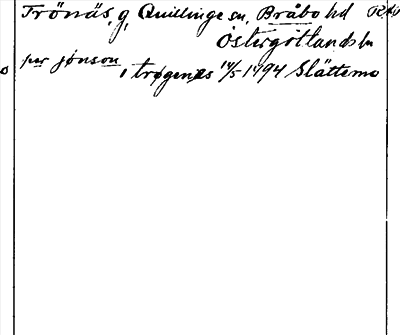 Trönäs, g, Quillinge sn, Bråbo hd
Östergötlands ln
per jønson i trøgenæs 14/5 1494 Slättemo